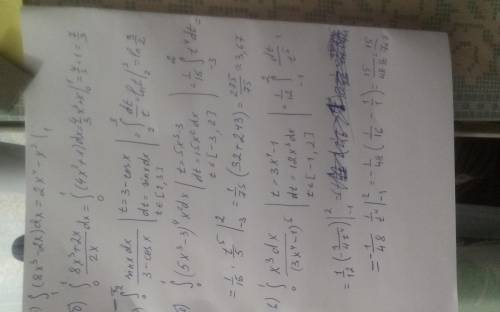 ∫ (8x³-2x)dx = 2x⁴-x² |₁
б) ∫₀¹ (8x³+2x)/(2x) dx = ∫₀¹ (4x²+1)dx = 4/3 x³ + x |₀¹ = 4/3 + 1 = 7/3
∫₀ sinxdx/(3-cosx) | t=3-cosx
dt=sinxdx
t∈[2,3] | = ∫₂³ dt/t = ln t |₂³ = ln 3/2
∫₀ (5x³-3)⁴x²dx | t=5x³-3
dt=15x²dx
t∈[-3,2] | = 1/15 ∫₋₃² t⁴dt =
= 1/15 · t⁵/5 |₋₃² = 1/75 (32+243) = 275/75 = 3,67
в) ∫₀ x³dx/(3x⁴-1)⁵ | t=3x⁴-1
dt=12x³dx
t∈[-1,2] | = 1/12 ∫₋₁² dt/t⁵ =
= -1/48 · 1/t⁴ |₋₁² = -1/48 (1/16 - 1/1) =